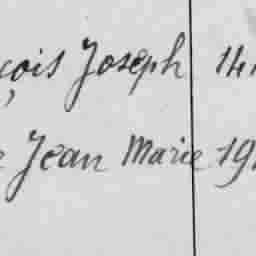 çois Joseph 14
e Jean Marie 19